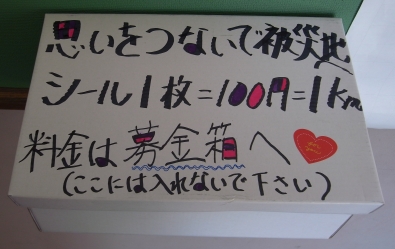 思いをつないで被災地
シール1枚=100円=1km
料金は募金箱へ
(ここには入れないで下さい)